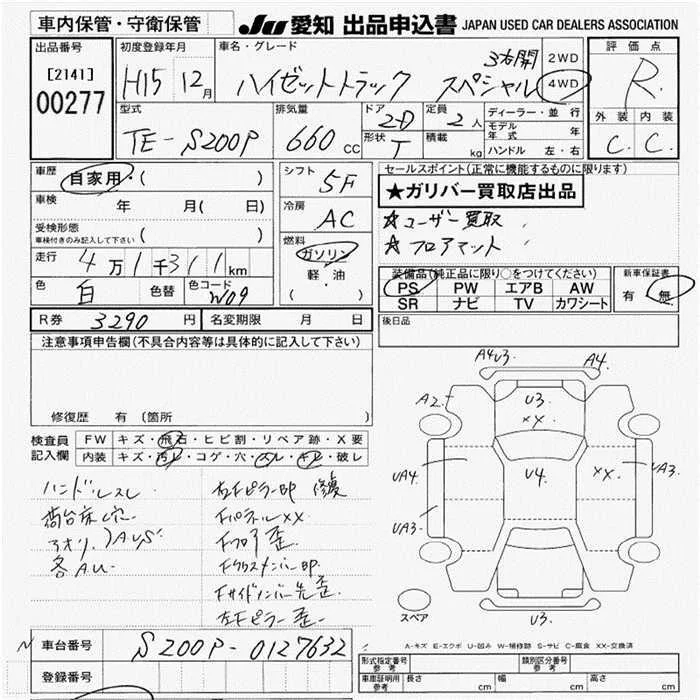 車内保管・守衛保管
JU 愛知 出品申込書 JAPAN USED CAR DEALERS ASSOCIATION
出品番号
[2141]
00277
初度登録年月
H15 12月
車名・グレード
ハイゼットトラック スペシャル
3方開
2WD
4WD
評価点
R.
外装 内装
C. C.
型式
TE-S200P
排気量
660 cc
ドア
2-D
形状
T
定員
2人
積載
kg
ディーラー・並行
モデル年式 年
ハンドル 左・右
車歴
自家用・( )
車検 年 月( 日)
受検形態
車検付きのみ記入して下さい ( )
走行
4万1千311km
色
白
色替
色コード
W09
シフト
5F
冷房
AC
燃料
ガソリン
軽・油
( )
セールスポイント(正常に機能するものに限ります)
★ガリバー買取店出品
☆ユーザー買取
☆フロアマット
装備品(純正品に限り○をつけてください)
PS PW エアB AW
SR ナビ TV カワシート
新車保証書
有 無
R券 3290円
名変期限 月 日
後日品
注意事項申告欄(不具合内容等は具体的に記入して下さい)
修復歴 有(箇所 )
検査員記入欄
FW キズ・飛石・ヒビ割・リペア跡・X要
内装 キズ・汚レ・コゲ・穴・スレ・キレ・破レ
ハンドルスレ
荷台床
アオリ
各AU
左Fピラー印 修復
FパネルXX
Fフロア歪
Fクロスメンバー印
Fサイドメンバー先歪
左Fピラー歪
A4 U3.
A4.
A2.
U3.
XX
UA4
U4.
XX
UA3.
UA3.
U3.
スペア
A-キズ E-エクボ U-凹み W-補修跡 S-サビ C-腐食 XX-交換済
車台番号
S200P-0127632
登録番号
型式指定番号 参考
類別区分番号 参考
車庫証明用 参考
長さ cm 幅 cm 高さ cm